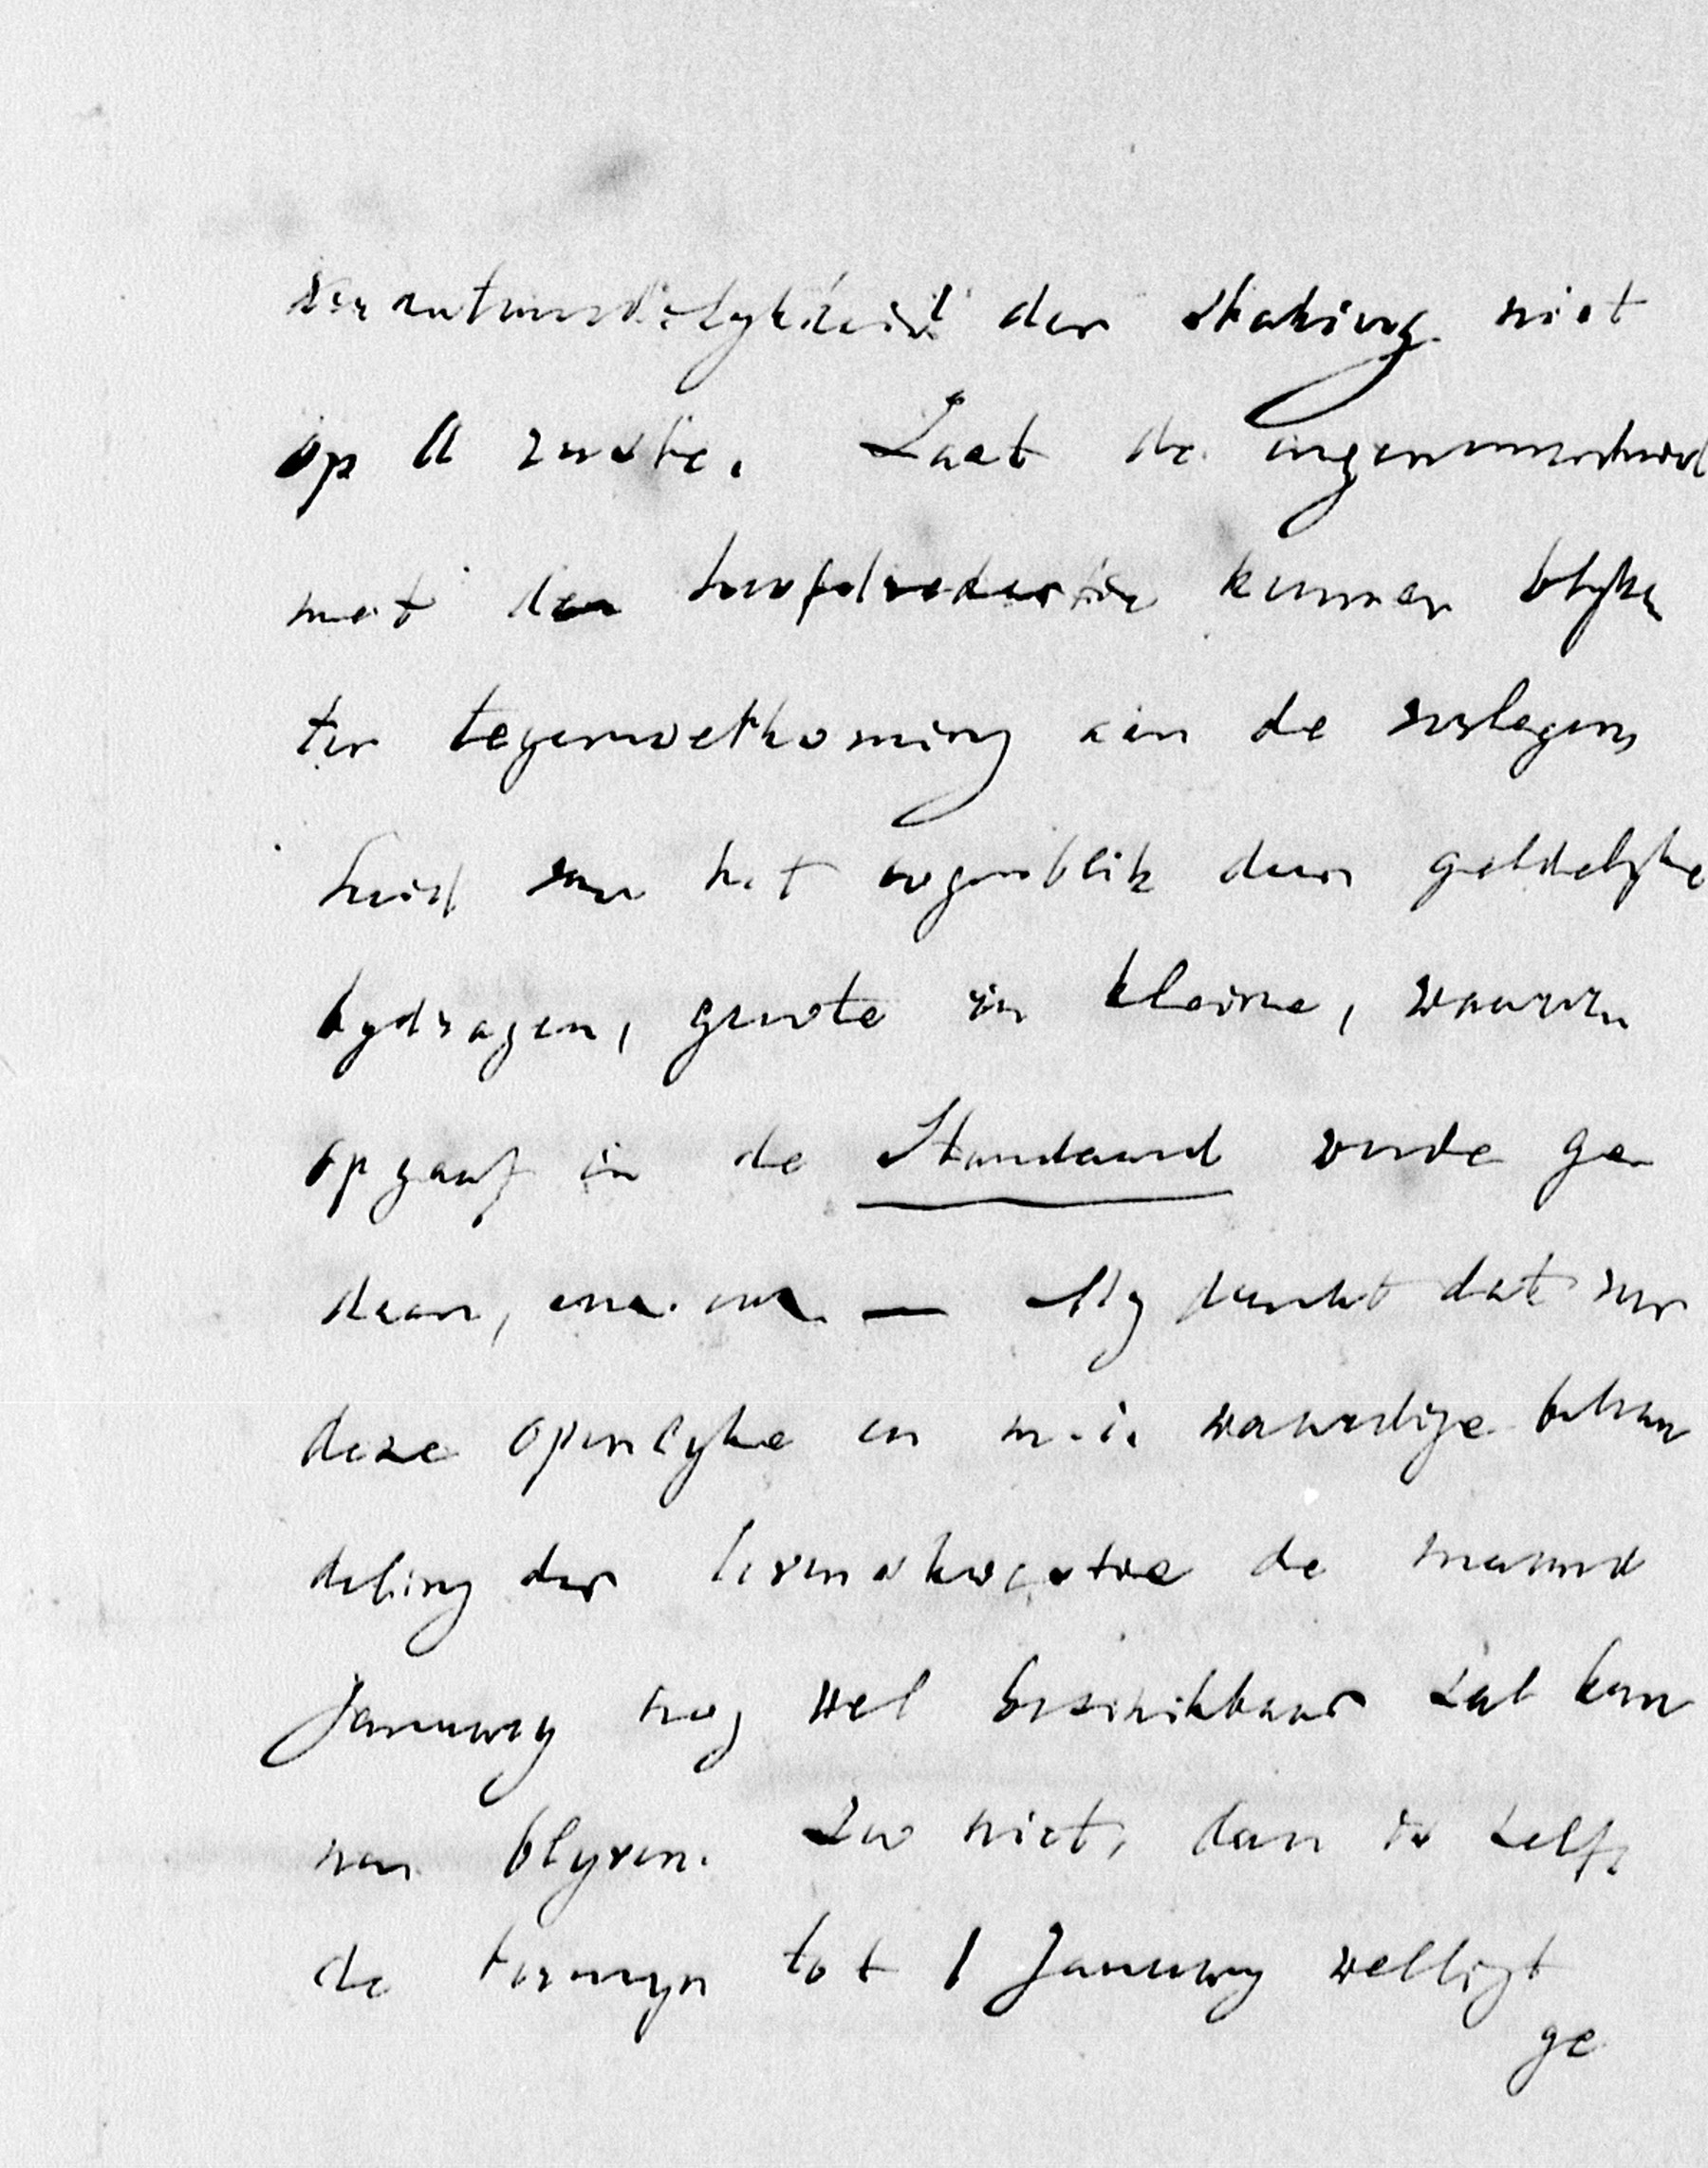 verantwoordelykheid der staking niet
op U ruste. Laat de ingenomenheid
met den hoofdredacteur kunnen blyken
ter tegemoetkoming aan de verlegen
heid van het oogenblik door geldelyke
bydragen, groote en kleine, waarvan
opgaaf in de Standaard worde ge
daan, enz. enz. — My dunkt dat voor
deze openlyke en m.i. waardige behan
deling der levenskwestie de maand
January nog wel beschikbaar zal kun
nen blyven. Zoo niet, dan is zelfs
de termyn tot 1 January welligt
ge